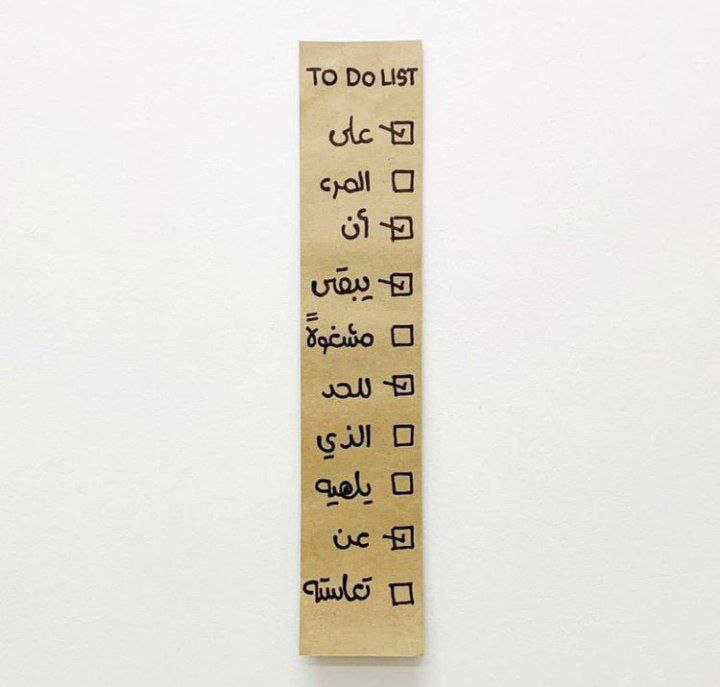 TO DO LIST
على
المرء
أن
يبقى
مشغولاً
للحد
الذي
يلهيه
عن
تعاسته